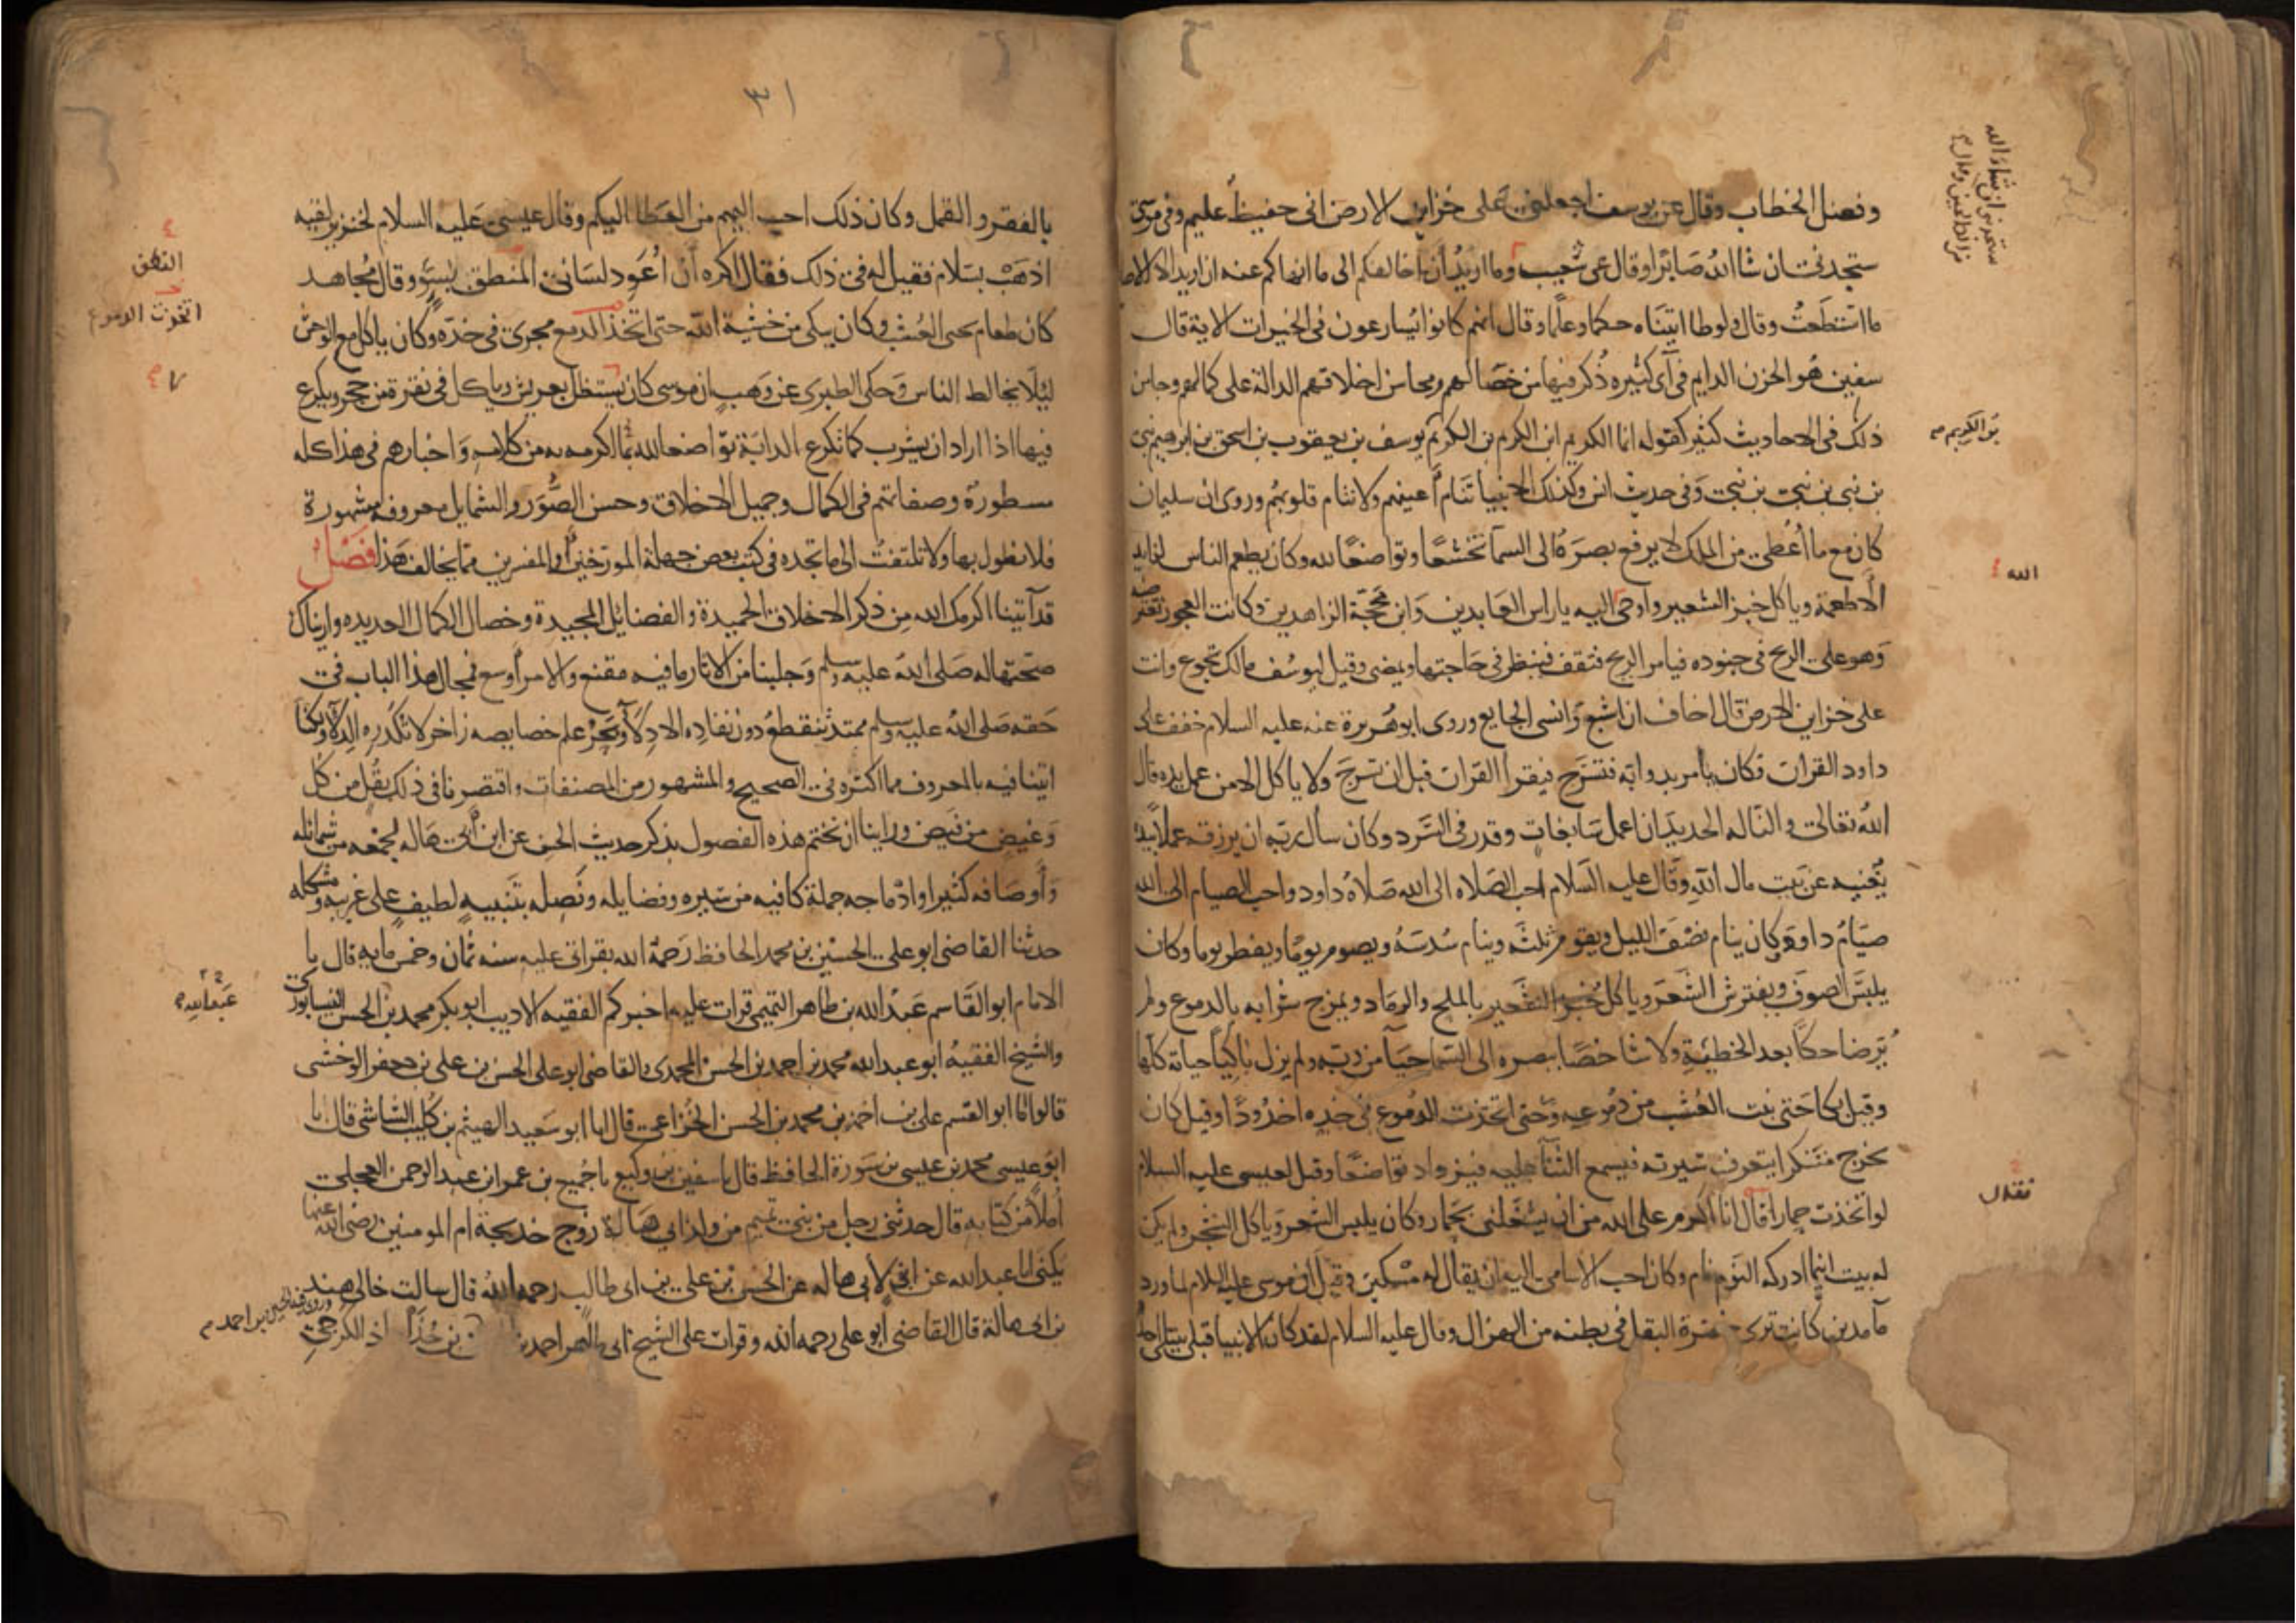 وفصل الخطاب وقال عن يوسف اجعلني على خزاين الارض اني حفيظ عليم وفي موسى
ستجدني ان شا الله صابرا وقال عن شعيب وما اريد أن اخالفكم الى ما انهاكم عنه ان اريد الا الاصلاح
ما استطعت وقال ولوطا اتيناه حكما وعلما وقال انهم كانوا يسارعون في الخيرات الاية قال
سفين هو الحزن الدايم في آي كثيره ذكر فيها من خصالهم ومحاسن اخلاقهم الدالة على كمالهم وجا من
ذلك في الاحاديث كثير كقوله انما الكريم ابن الكريم بن الكريم يوسف بن يعقوب بن اسحق بن ابرهيم نبي
بن نبي بن نبي بن نبي وفي حديث انس وكذلك الانبيا تنام أعينهم ولا تنام قلوبهم وروى ان سليمان
كان مع ما أعطى من الملك لا يرفع بصره الى السما تخشعا وتواضعا لله وكان يطعم الناس لذايد
الاطعمة وياكل خبز الشعير واوحى اليه يا راس العابدين وابن محجة الزاهدين وكانت العجوز تعترضه
وهو على الريح في جنوده فيامر الريح فتقف فينظر في حاجتها ويمضى وقيل ليوسف مالك تجوع وانت
على خزاين الارض قال اخاف ان اشبع وانسى الجايع وروى ابو هريرة عنه عليه السلام خفف على
داود القران فكان يامر بدوابه فتسرج فيقرا القران قبل ان تسرج ولا ياكل الا من عمل يده قال
الله تعالى والنا له الحديد ان اعمل سابغات وقدر في السرد وكان سأل ربه ان يرزقه عملا بيده
يغنيه عن بيت مال الله وقال عليه السلام احب الصلاه الى الله صلاة داود واحب الصيام الى الله
صيام داود وكان ينام نصف الليل ويقوم ثلثه وينام سدسه ويصوم يوما ويفطر يوما وكان
يلبس الصوف ويفترش الشعر وياكل خبز الشعير بالملح والرماد ويمزج شرابه بالدموع ولم
ير ضاحكا بعد الخطيئة ولا شاخصا ببصره الى السما حيآ من ربه ولم يزل باكيا حياته كلها
وقيل بكا حتى نبت العشب من دموعه وحتى اتخذت الدموع في خده اخدودا وقيل كان
يخرج متنكرا يتعرف سيرته فيسمع الثنآ عليه فيزداد تواضعا وقيل لعيسى عليه السلام
لو اتخذت حمارا فقال انا اكرم على الله من ان يشغلني بحمار وكان يلبس الشعر وياكل الشجر ولم يكن
له بيت اينما ادركه النوم نام وكان احب الاسامى اليه ان يقال له مسكين وقيل أن موسى عليه السلام لما ورد
مآ مدين كانت ترى خضرة البقل في بطنه من الهزال وقال عليه السلام لقد كان الانبيا قبلي يبتلى احدهم
بن الكريم
الله
فقال
٣١
بالفقر والقمل وكان ذلك احب اليهم من العطا اليكم وقال عيسى عليه السلام لخنزير لقيه
اذهب بسلام فقيل له في ذلك فقال اكره أن أعود لساني المنطق بسوء وقال مجاهد
كان طعام يحيى العشب وكان يبكى من خشية الله حتى اتخذ الدمع مجرى في خده وكان ياكل مع الوحش
ليلا يخالط الناس وحكى الطبرى عن وهب ان موسى كان يستظل بعريش وياكل في نقرة من حجر ويكرع
فيها اذا اراد ان يشرب كما تكرع الدابة تواضعا لله بما اكرمه به من كلامه واخبارهم في هذا كله
مسطورة وصفاتهم في الكمال وجميل الاخلاق وحسن الصور والشمايل معروفه مشهورة
فلا نطول بها ولا تلتفت الى ما تجده في كتب بعض جهلة المورخين والمفسرين مما يخالف هذا فصل
قد آتينا اكرمك الله من ذكر الاخلاق الحميدة والفضايل المجيدة وخصال الكمال العديده واريناك
صحتها له صلى الله عليه وسلم وجلبنا من الاثار ما فيه مقنع والامر أوسع فمجال هذا الباب في
حقه صلى الله عليه وسلم ممتد تنقطع دون نفاده الادلآ وبحر علم خصايصه زاخر لا تكدره الدلآ ولكنا
اتينا فيه بالمعروف مما اكثره في الصحيح والمشهور من المصنفات واقتصرنا في ذلك بقل من كل
وغيض من فيض وراينا ان نختم هذه الفصول بذكر حديث الحسن عن ابن أبي هالة لجمعه من شمائله
وأوصافه كثيرا وادماجه جملة كافيه من سيره وفضايله ونصله بتنبيه لطيف على غريبه ومشكله
حدثنا القاضي ابو على الحسين بن محمد الحافظ رحمه الله بقراتي عليه سنه ثمان وخمس مايه قال نا
الامام ابو القاسم عبد الله بن طاهر التميمي قرات عليه اخبركم الفقيه الاديب ابو بكر محمد بن الحسن النيسابوري
والشيخ الفقيه ابو عبد الله محمد بن احمد بن الحسن المحمدى والقاضي ابو على الحسن بن على بن جعفر الوخشى
قالوا انا ابو القسم على بن احمد بن محمد بن الحسن الخزاعي قال انا ابو سعيد الهيثم بن كليب الشاشى قال نا
ابو عيسى محمد بن عيسى بن سورة الحافظ قال نا سفين بن وكيع نا جميع بن عمر ابن عبد الرحمن العجلي
أملآ من كتابه قال حدثنى رجل من بني تميم من ولد ابي هالة زوج خديجة ام المومنين رضى الله عنها
يكنى ابا عبد الله عن ابن لأبي هاله عن الحسن بن على بن ابي طالب رحمه الله قال سالت خالى هند
بن ابي هالة قال القاضى أبو على رحمه الله وقرات على الشيخ ابي طاهر احمد بن الكرجي
النطق
اتخذت الدموع